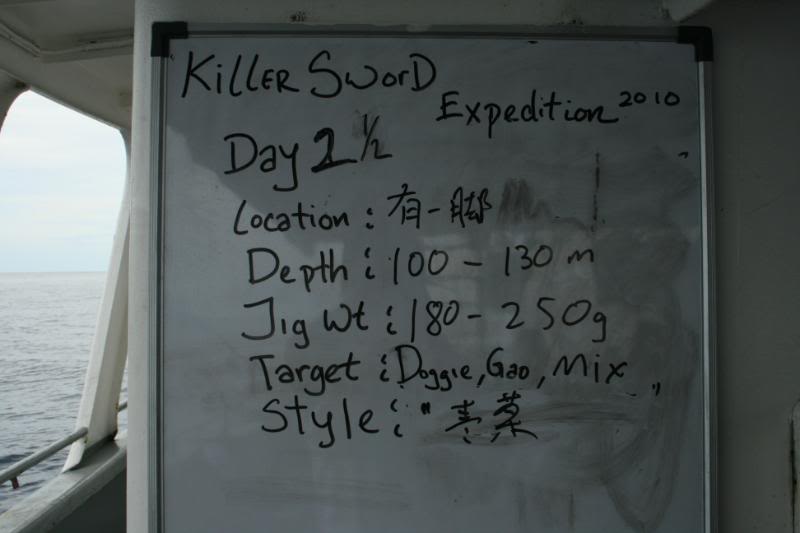 KillER SworD
Expedition 2010
Day 2 ½
Location : 有一脚
Depth : 100 - 130 m
Jig Wt : 180 - 250g
Target : Doggie, Gao, Mix
Style : "青菜"